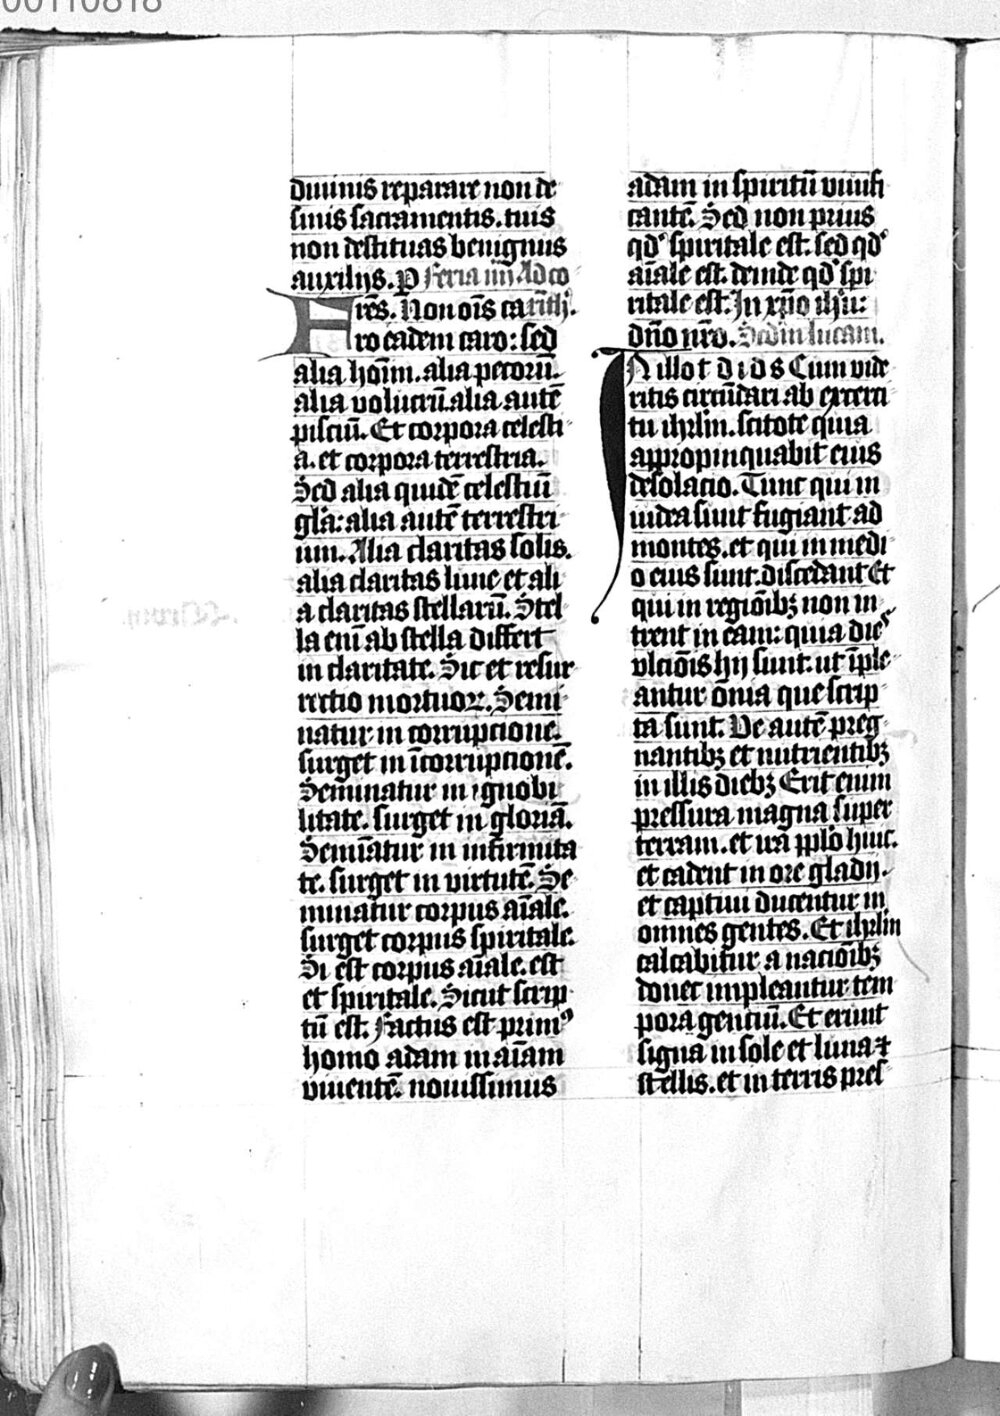 00110818
diuinis reparare non de
sinis sacramentis. tuis
non destituas benignus
auxilijs. P Feria iiij. Ad co
Fres. Non oīs ca rinth.
ro eadem caro: sed
alia hoīm. alia pecorū.
alia volucrū. alia autē
pisciū. Et corpora celesti
a. et corpora terrestria.
Sed alia quidē celestiū
gl̄a: alia autē terrestri
um. Alia claritas solis.
alia claritas lune et ali
a claritas stellarū. Stel
la enī ab stella differt
in claritate. Sic et resur
rectio mortuoꝝ. Semi
natur in corrupcione.
surget in īcorrupcionē.
Seminatur in ignobi
litate. surget in gloriā.
Semīatur in infirmita
te. surget in virtutē. Se
minatur corpus aīale.
surget corpus spiritale.
Si est corpus aīale. est
et spiritale. Sicut scrip
tū est. Factus est primꝰ
homo adam in aīam
viuentē. nouissimus
adam in spiritū viuifi
cantē. Sed non prius
qdͦ spiritale est. sed qdͦ
aīale est. deinde qdͦ spi
ritale est. In xp̄o ih̄u:
dn̄o nr̄o. Sed̄m lucam.
In illo t d i d s Cum vide
ritis circūdari ab exerci
tu ihrlm. scitote quia
appropinquabit eius
desolacio. Tunc qui in
iudea sunt fugiant ad
montes. et qui in medi
o eius sunt. discedant Et
qui in regiōibꝫ non in
trent in eam: quia dies
vlciōis hij sunt. ut īple
antur ōnia que scrip
ta sunt. Ve autē preg
nantibꝫ et nutrientibꝫ
in illis diebꝫ Erit enim
pressura magna super
terram. et ira pplo huic.
et cadent in ore gladij.
et captiui ducentur in
omnes gentes. Et ihrlm
calcabitur a naciōibꝫ
donec impleantur tem
pora genciū. Et erunt
signa in sole et luna ⁊
stellis. et in terris pres